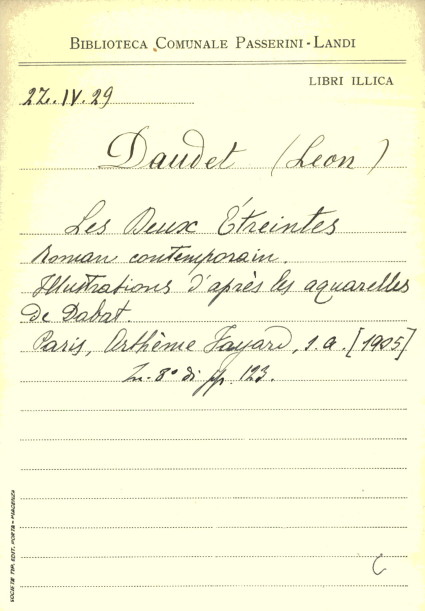 BIBLIOTECA COMUNALE PASSERINI-LANDI
LIBRI ILLICA
2Z.IV.29
Daudet (Leon)
Les Deux Étreintes
Roman contemporain.
Illustrations d'après les aquarelles
de Dabat.
Paris, Arthème Fayard, s.a. [1905]
In-8° di pp. 123.
C